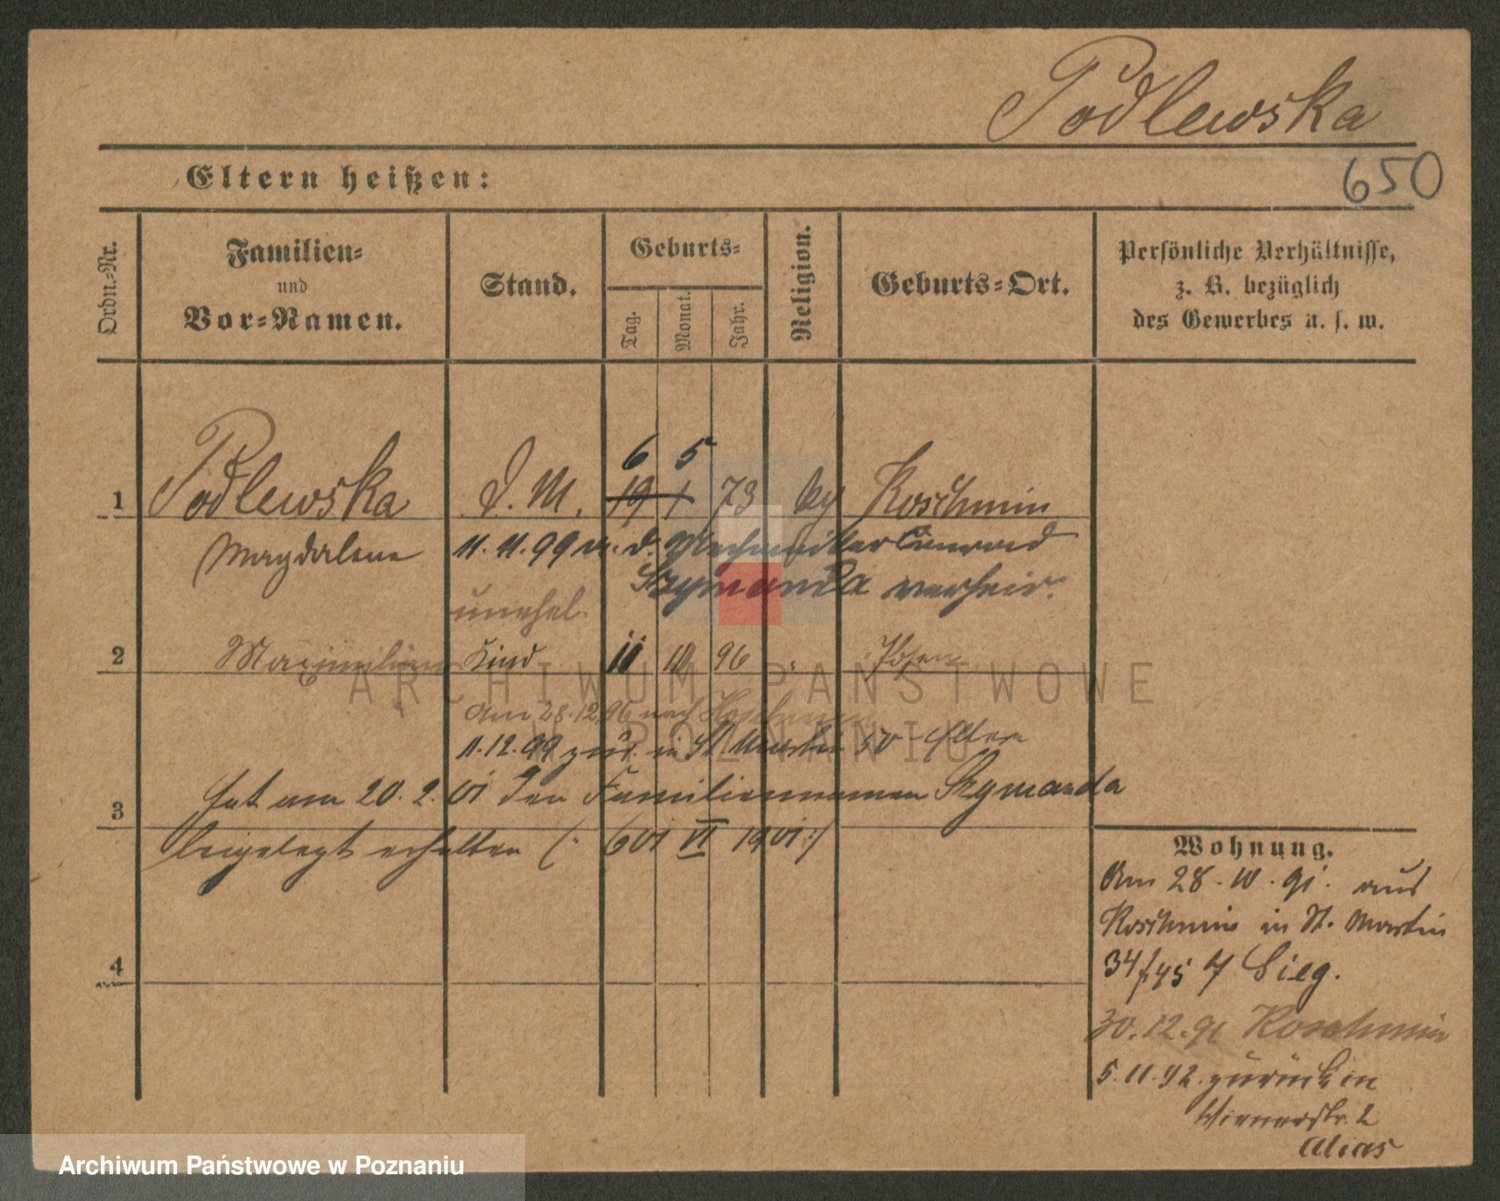 Podlewska
650
Eltern heißen:
Ordn.-Nr.
Familien-
und
Vor-Namen.
Stand.
Geburts-
Tag.
Monat.
Jahr.
Religion.
Geburts-Ort.
Persönliche Verhältnisse,
z. B. bezüglich
des Gewerbes u. s. w.
6 5
1 Podlewska D. M. 19 1 73 kg Koschmin
Magdalene 11.11.99 m. d. Mechaniker Conrad
Szymanda verheir.
unehel.
2 Maximilian Kind 11 10 96 Posen
am 28.12.96 nach Koschmin
11.12.99 zur. in St Martin 50 Eltern
hat am 20.2.01 den Familiennamen Szymanda
3
beigelegt erhalten (: 601 VI 1901 :)
4
Wohnung.
Am 28.10.91. aus
Koschmin in St. Martin
34/45 7 Sieg.
30.12.91 Koschmin
5.11.92. zurück in
Wienerstr. 2
Alias
ARCHIWUM PAŃSTWOWE
W POZNANIU
Archiwum Państwowe w Poznaniu